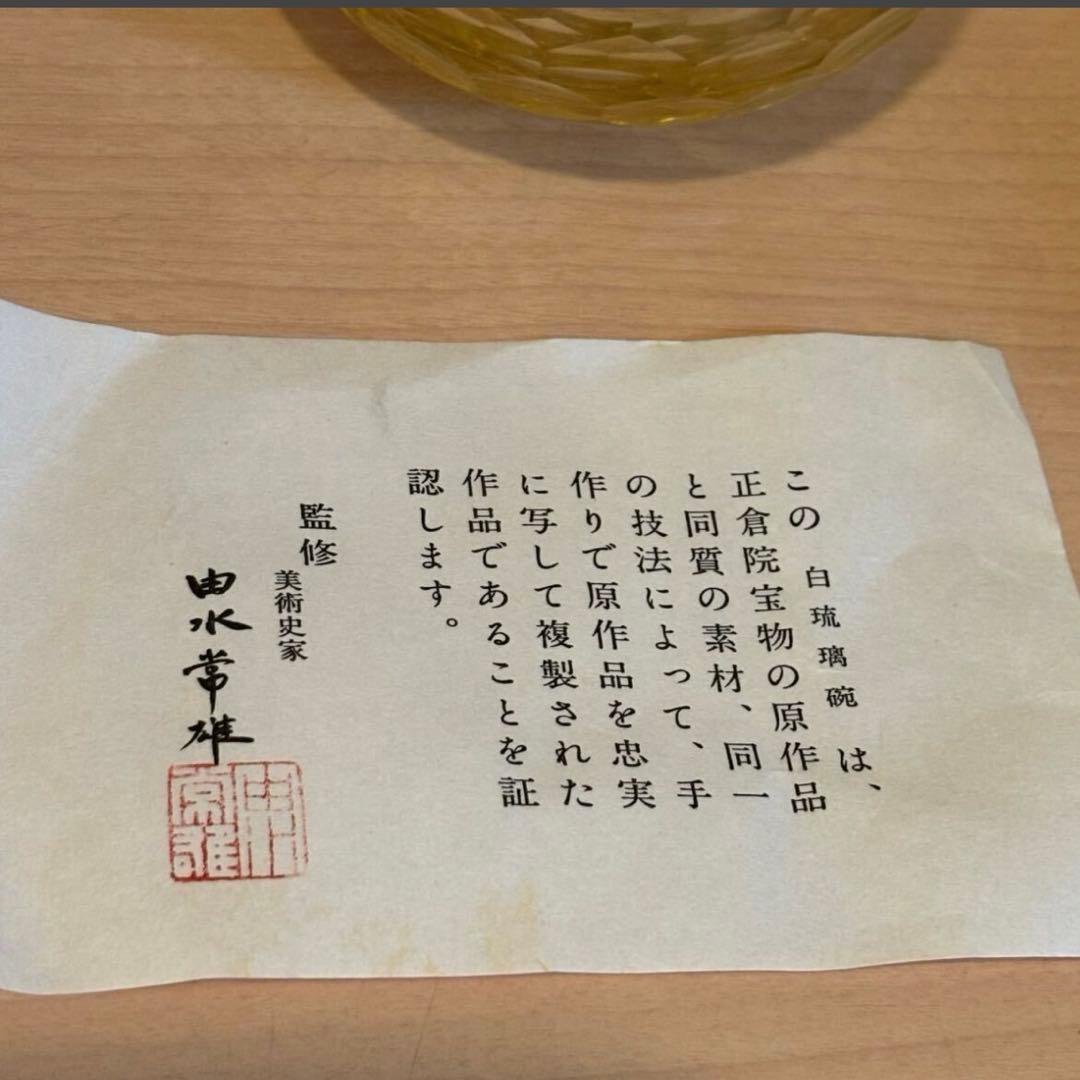 この 白琉璃碗 は、
正倉院宝物の原作品
と同質の素材、同一
の技法によって、手
作りで原作品を忠実
に写して複製された
作品であることを証
認します。
監修
美術史家
由水常雄
由水
常雄